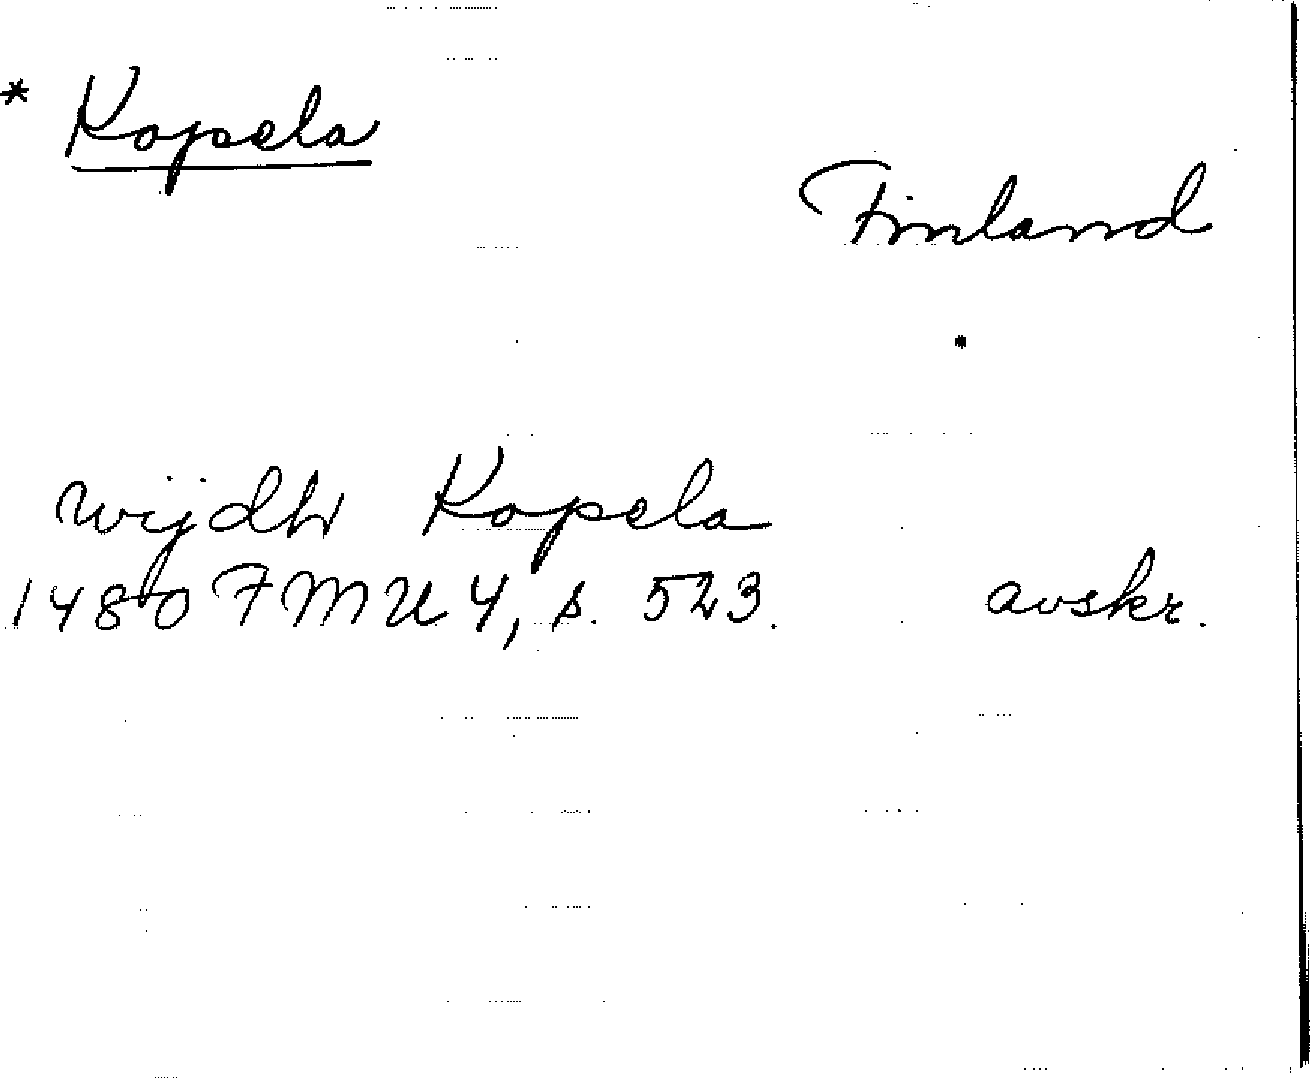 * Kopela
Finland
wijdh Kopela
1480 FMU 4, s. 523. avskr.